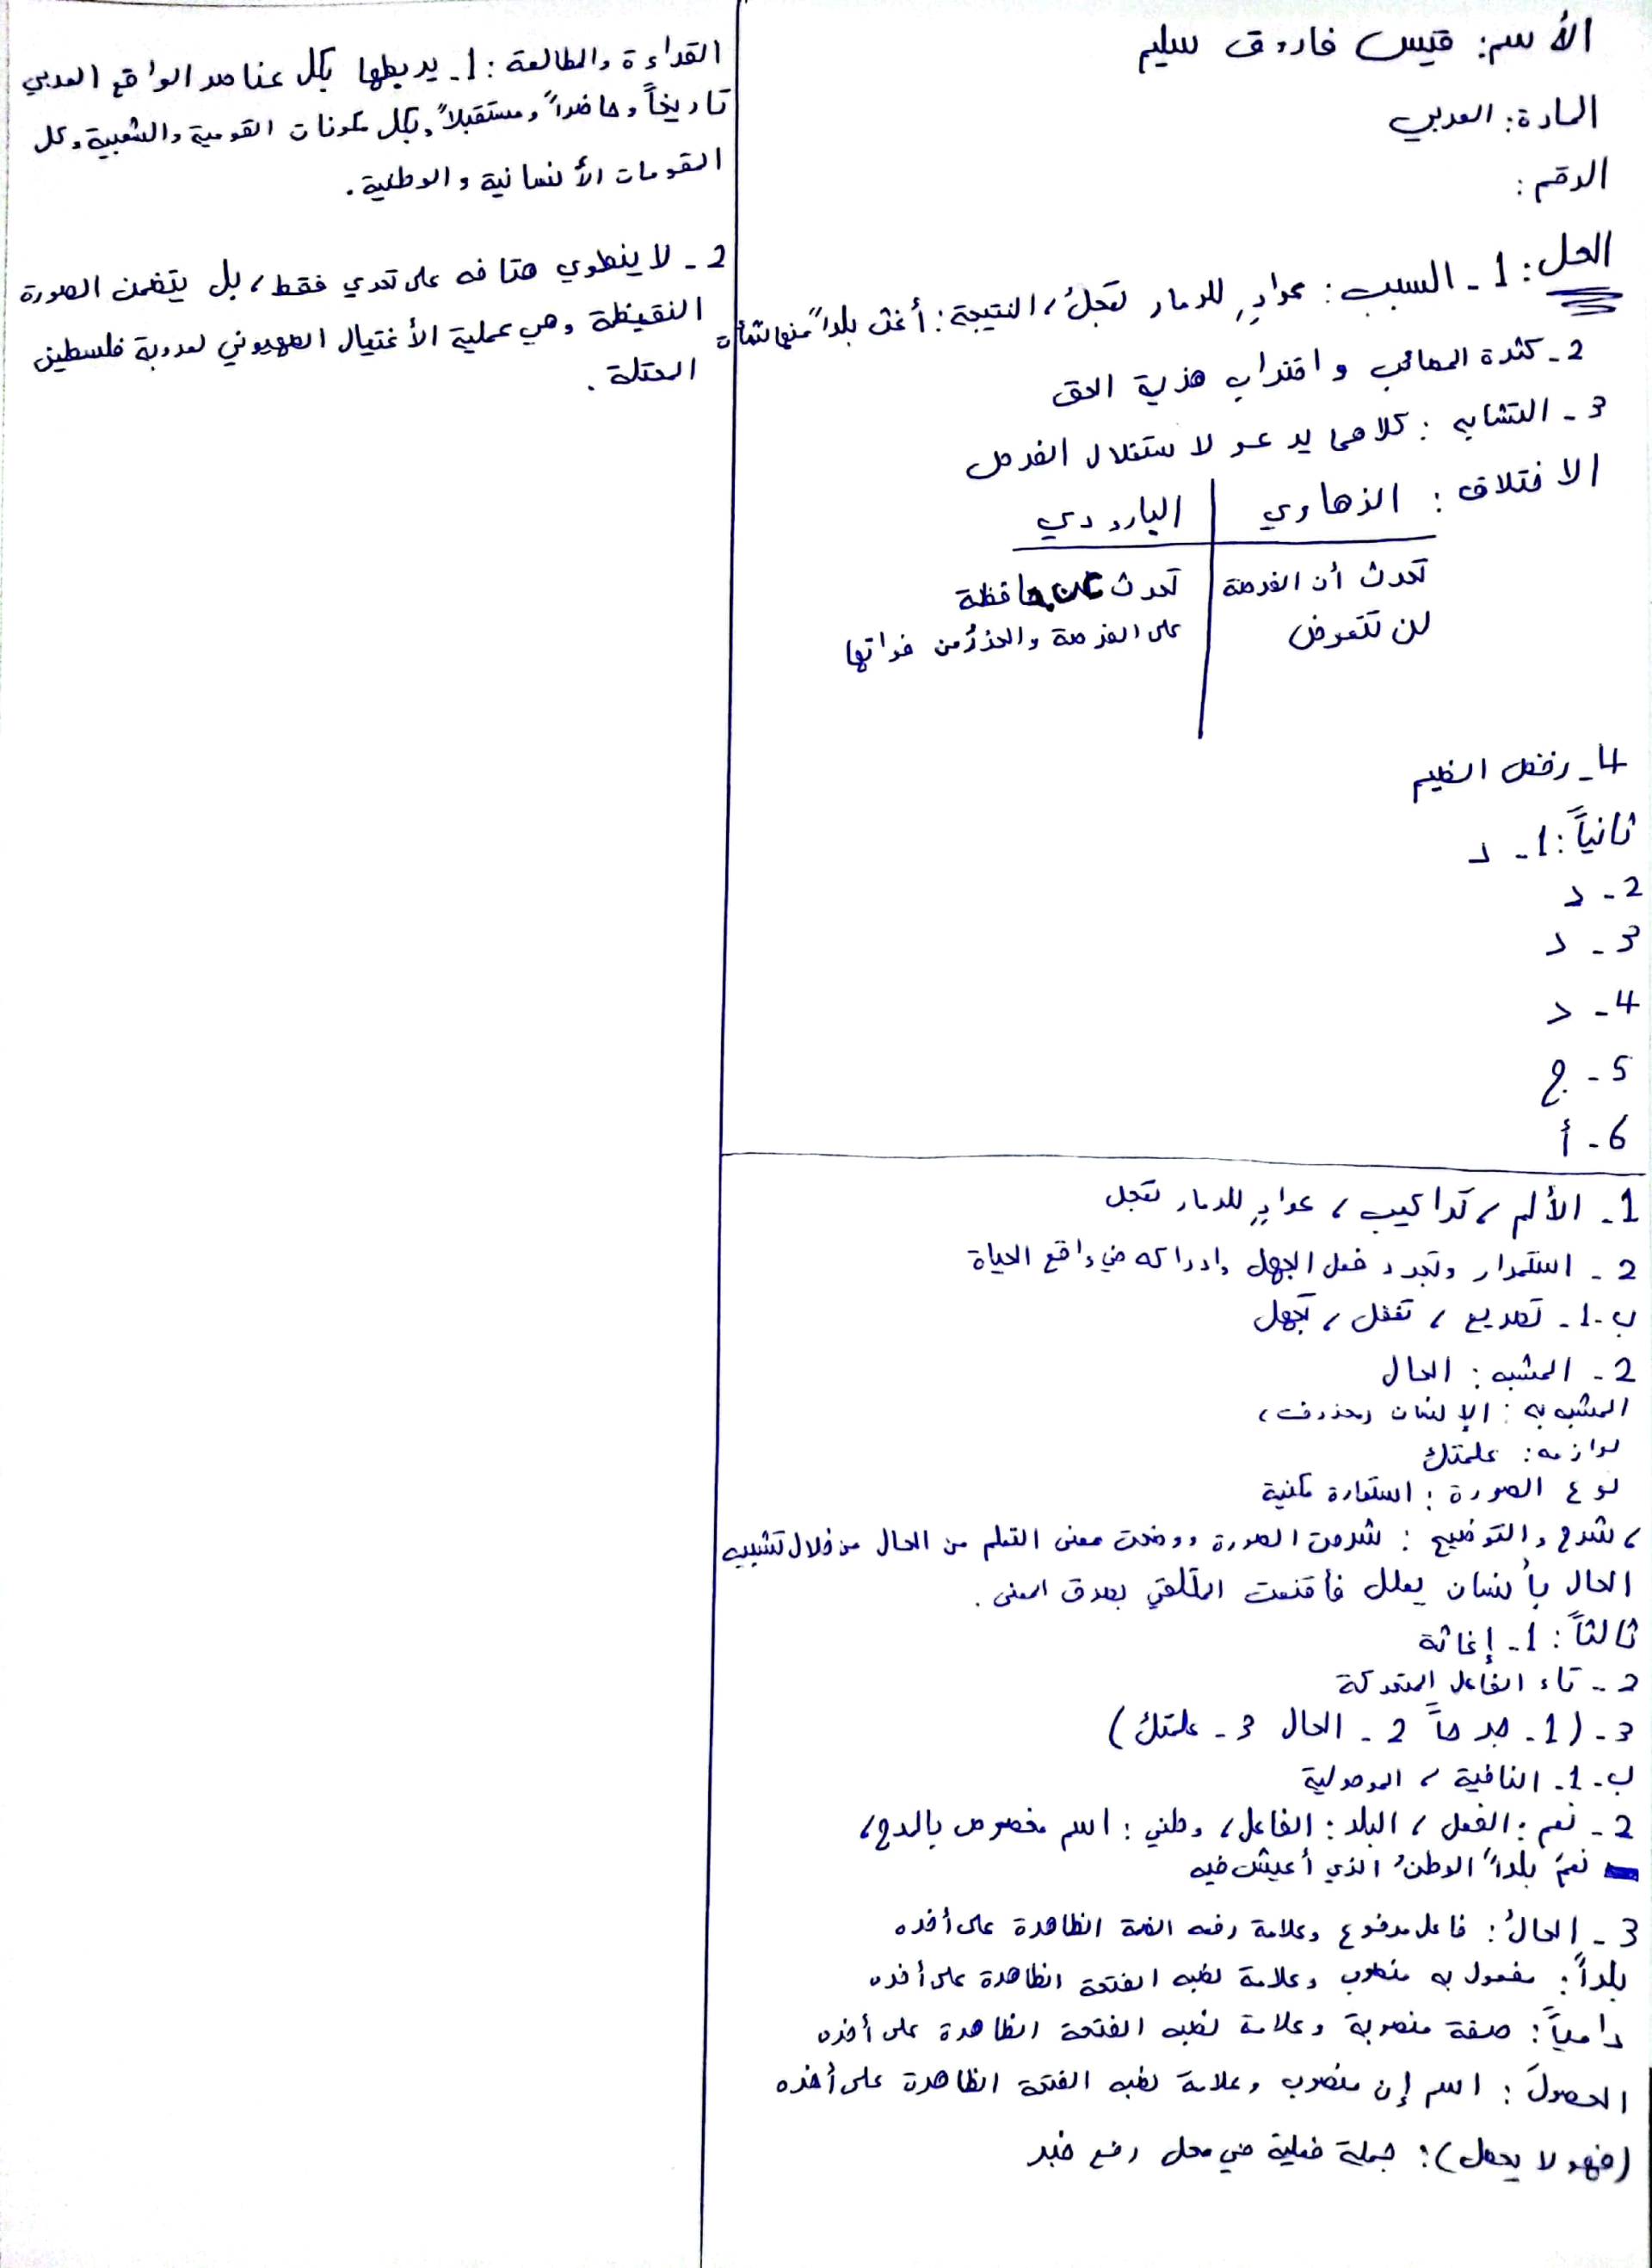 الأسم: قيس فاروق سليم
المادة: العربي
الرقم:
الحل: 1 - السبب: عوادٍ للدمار تعجلُ، النتيجة: أغث بلداً منها نشأت
2 - كثرة المصائب و اقتراب هزيمة الحق
3 - التشابه: كلاهما يدعو لاستغلال الفرص
الاختلاف: الزهاوي | البارودي
تحدث أن الفرصة | تحدث عن حافظة
لن تتعوض | على الفرصة والحذر من فواتها
4 - رفض الضيم
ثانياً: 1 - د
2 - د
3 - د
4 - د
5 - ج
6 - أ
1 - الألم، تراكيب، عوادٍ للدمار تعجل
2 - استمرار وتجدد فعل الجهل وادراكه في واقع الحياة
ب - 1 - تصريع، تغفل، تجهل
2 - المشبه: الحال
المشبه به: الإنسان (محذوف)
لوازمه: علمتك
نوع الصورة: استعارة مكنية
، شرح والتوضيح: شرحت الصورة ووضحت معنى التعلم من الحال من خلال تشبيه
الحال بأنسان يعلل فأقنعت المتلقي بصدق المعنى.
ثالثاً: 1 - إغاثة
2 - تاء الفاعل المتحركة
3 - (1 - جرحاً 2 - الحال 3 - علمتك)
ب - 1 - النافية، الموصولية
2 - نعم: الفعل، البلد: الفاعل، وطني: اسم مخصوص بالمدح،
نعم بلداً الوطنُ الذي أعيش فيه
3 - الحالُ: فاعل مرفوع وعلامة رفعه الضمة الظاهرة على أخره
بلداً: مفعول به منصوب وعلامة نصبه الفتحة الظاهرة على أخره
دامياً: صفة منصوبة وعلامة نصبه الفتحة الظاهرة على أخره
الحصولَ: اسم إن منصوب وعلامة نصبه الفتحة الظاهرة على أخره
(فهو لا يحصل): جملة فعلية في محل رفع خبر
القراءة والطالعة: 1 - يربطها بكل عناصر الواقع العربي
تاريخاً وحاضراً ومستقبلاً، وبكل مكونات القومية والشعبية وكل
المقومات الأنسانية والوطنية.
2 - لا ينطوي هتافه على تحدي فقط، بل يتضمن الصورة
النقيظة وهي عملية الأغتيال الصهيوني لعروبة فلسطين
المحتلة.